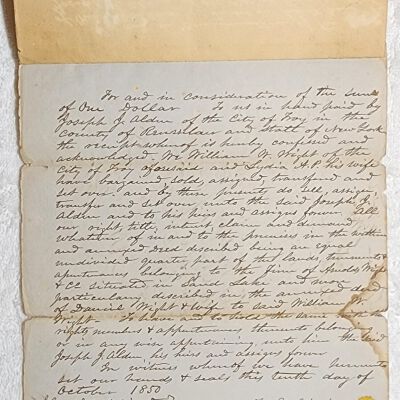 For and in consideration of the sum
of One Dollar To us in hand paid by
Joseph J. Alden of the City of Troy in the
County of Rensselaer and State of New York
the receipt whereof is hereby confessed and
acknowledged, We William W. Wight of the
City of Troy aforesaid and his wife
have bargained, sold, assigned, transferred and
set over and by these presents do sell, assign,
transfer and set over, unto the said Joseph J.
Alden and to his heirs and assigns forever, All
our right, title, interest claim and demand
whatever of in and to the premises in the within
and annexed deed described being an equal
undivided quarter part of the lands, tenements &
appurtenances belonging to the firm of Wight
& Co. situated in Sand Lake and more
particularly described in the annexed deed
of Daniel Wight & lady to said William W.
Wight To have and to hold the same with the
rights, members & appurtenances thereunto belonging
or in any wise appertaining, unto him the said
Joseph J. Alden, his heirs and assigns forever
In witness whereof we have hereunto
set our hands & seals this tenth day of
October, 1850